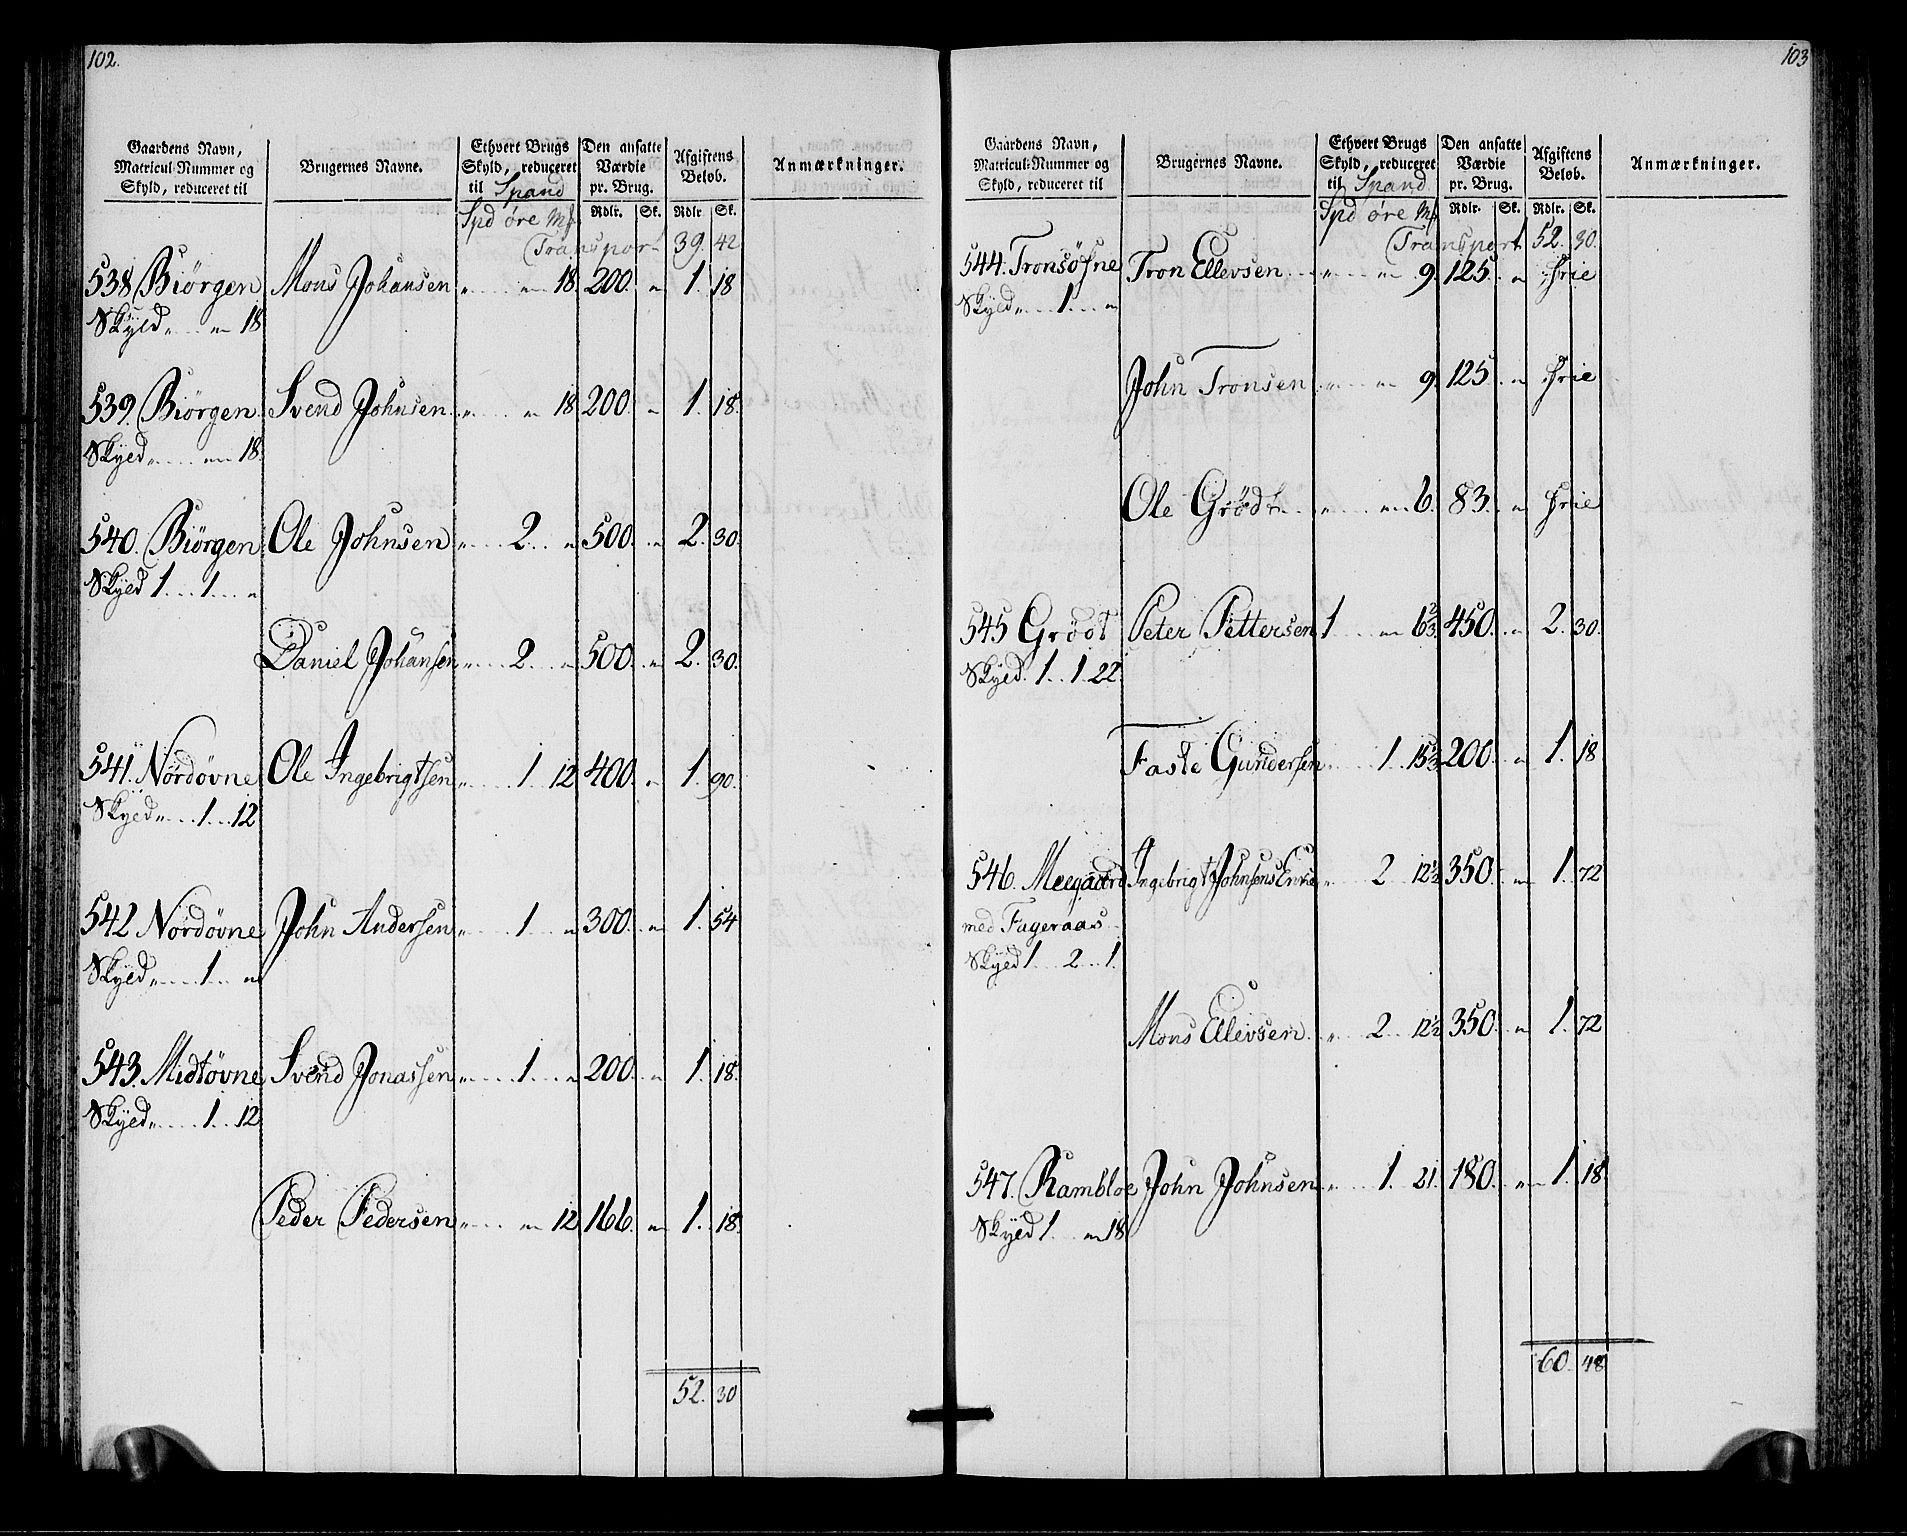 102.
Gaardens Navn, Matricul-Nummer og Skyld, reduceret til | Brugernes Navne. | Ethvert Brugs Skyld, reduceret til Spand | Den ansatte Værdie pr. Brug. | Afgiftens Beløb. | Anmærkninger.
Spd øre Mk | Rdlr. Sk. | Rdlr Sk.
Transport 39. 42
538 Biörgen Mons Johansen „ „ 18. 200. „ 1. 18
Skyld „ „ 18
539. Biörgen Svend Johnsen „ „ 18 200. „ 1. 18.
Skyld „ „ 18.
540. Biörgen Ole Johnsen „ 2. „ 500. „ 2. 30.
Skyld 1 1 „
Daniel Johansen „ 2. „ 500. „ 2. 30.
541. Nordövne Ole Ingebrigtsen „ 1 12 400. „ 1. 90.
Skyld „ 1 12
542 Nordövne John Andersen „ 1 „ 300. „ 1. 54
Skyld „ 1 „
543. Midtövne Svend Jonassen „ 1. „ 200. „ 1. 18.
Skyld „ 1. 12
Peder Pedersen „ „ 12 166. „ 1. 18.
52. 30
103
Gaardens Navn, Matricul-Nummer og Skyld, reduceret til | Brugernes Navne. | Ethvert Brugs Skyld, reduceret til Spand | Den ansatte Værdie pr. Brug. | Afgiftens Beløb. | Anmærkninger.
Spd øre Mk | Rdlr. Sk. | Rdlr. Sk.
Transport 52. 30.
544. Tronsösne Tron Ellevsen „ „ 9. 125. „ frie
Skyld „ 1 „
John Tronsen „ „ 9. 125 „ frie
Ole Gröd „ „ 6. 83. „ frie
545 Grööt Peter Pettersen 1 „ 6 2/3 450. „ 2. 30.
Skyld. 1. 1. 22.
Faste Gundersen „ 1. 15 1/3 200. „ 1. 18
546. Meegaard Ingebrigt Johnsens Enke „ 2 12 1/2 350. „ 1. 72
med Fageraas
Skyld 1. 2. 1.
Mons Ellevsen „ 2. 12 1/2 350. „ 1. 72
547. Rambloe John Johnsen „ 1. 21. 180. „ 1. 18
Skyld 1. „ 18
60. 48